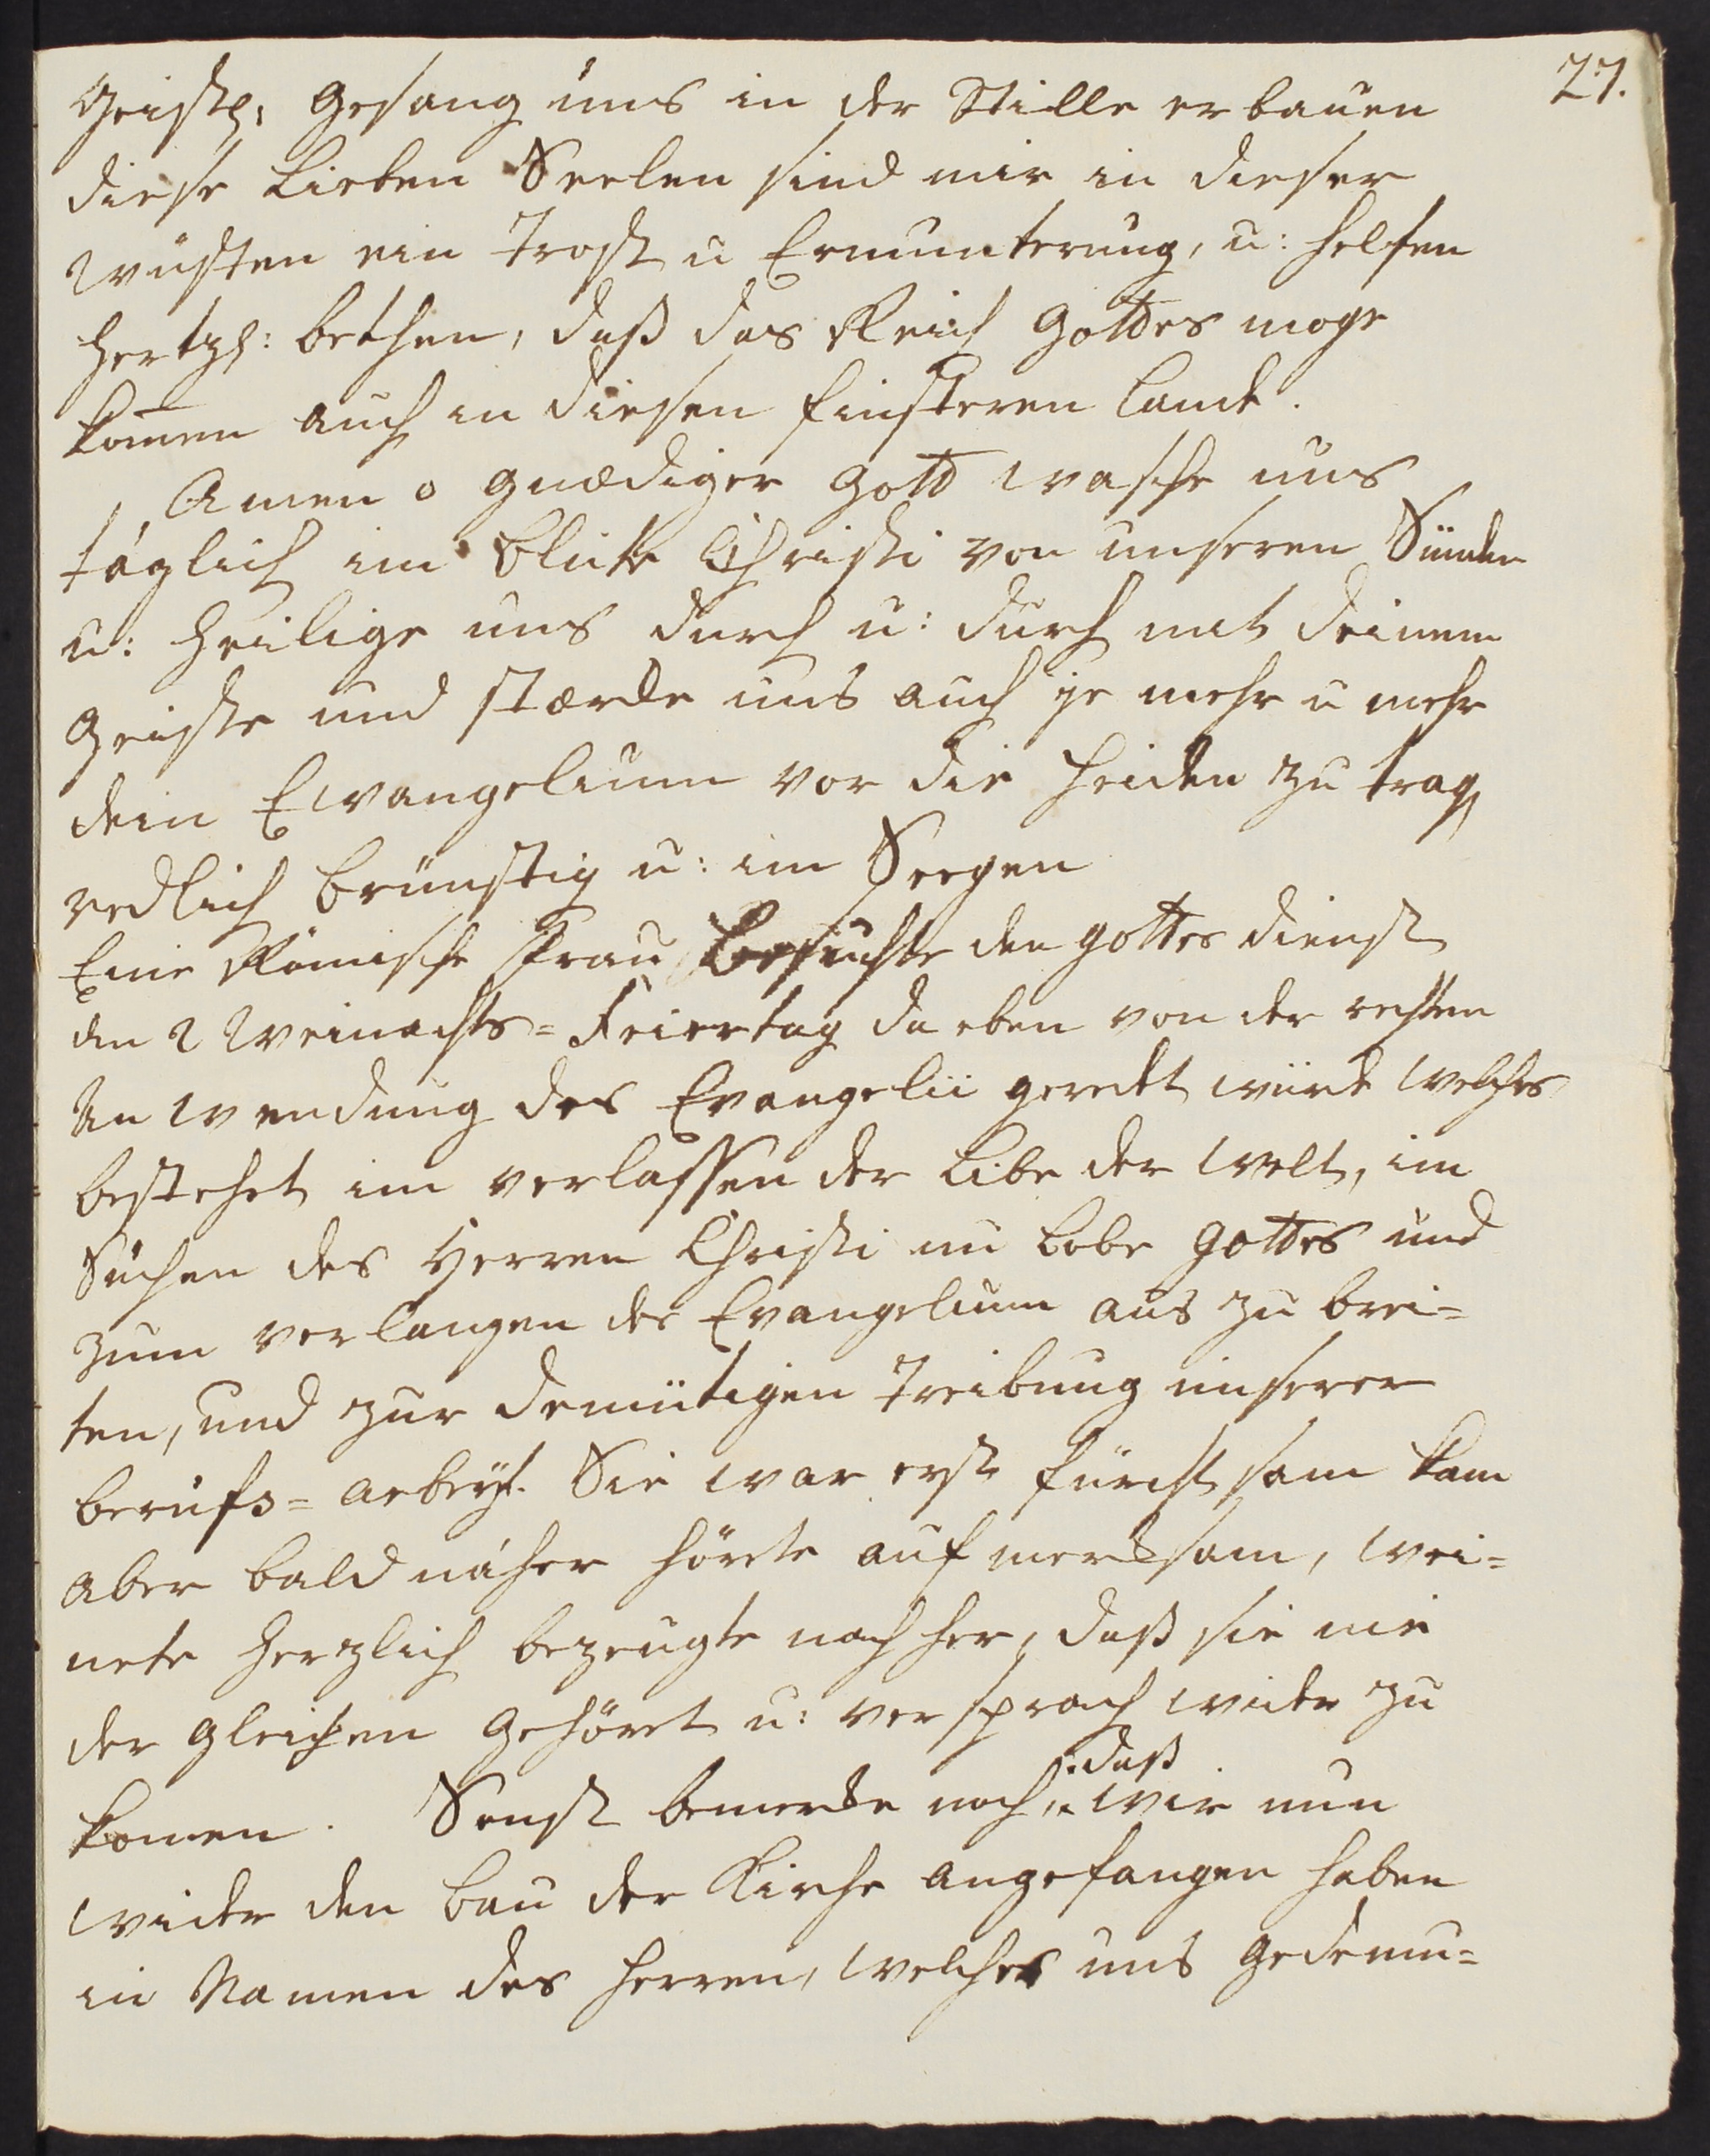 27.
Geistl: Gesang uns in der Stille erbauen
diese Lieben Seelen sind mir in dieser
Wüsten ein Trost u Ermunterung, u: helfen
hertzl: bethen, daß das Reich Gottes moge
komen auch in diesen finsteren Lande.
Amen o gnædiger Gott wasche uns
täglich im Blute Christi von unseren Sünden
u: heilige uns durch u: durch mit deinem
Geiste und stærcke uns auch je mehr u mehr
dein Ewangelium vor die Heiden zu trag
redlich brünstig u: im Seegen
Eine Römische Frau besuchte den gottes dienst
den 2 Weinachts=Feiertag da eben von der rechten
An wendung des Evangelii geredt würde welches
bestehet im verlassen der Libe der Welt, im
Suchen des Herren Christi im Lobe Gottes und
zum verlangen des Evangelium aus zu brei=
ten, und zur demütigen Treibung unserer
berufs=arbeyt. Sie war erst fürcht sam kam
aber bald näher hörete auf mercksam, wei=
nete herzlich bezeugte nach her, daß sie nie
der gleichen gehöret u: ver sprach wider zu
komen. Sonst bemercke noch, daß wir nun
wider den Bau der Kirche angefangen haben
in Namen des Herren, welcher uns gedemu=